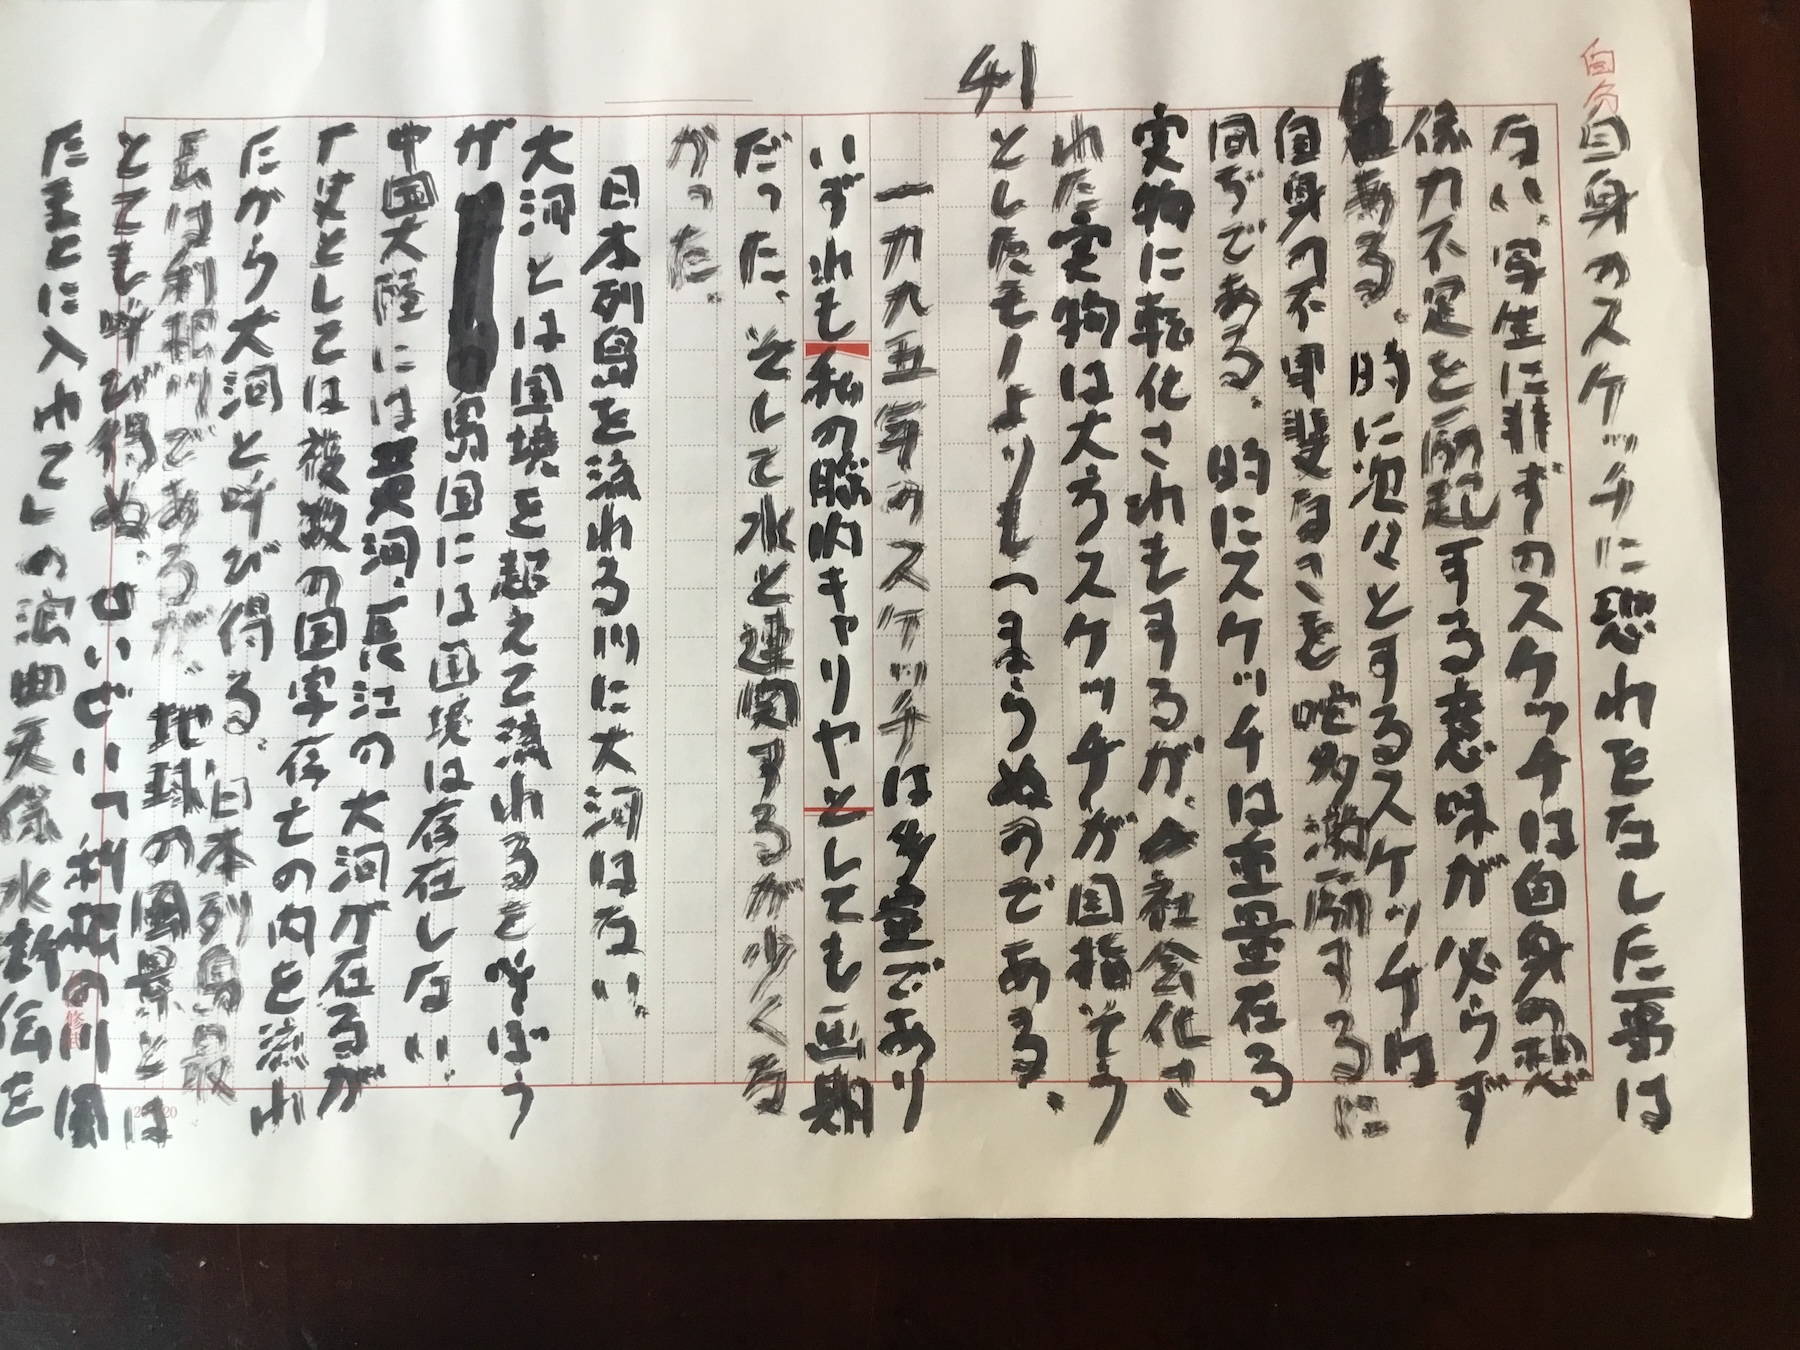 41
自身のスケッチに恐れをなした事は
ない。写生に非ずのスケッチは自身の想
像力不足を励起する意味が必らず
ある。時に迄々とするスケッチは
自身の不甲斐なさを叱咤激励するに
同じである。時にスケッチは重量在る
実物に転化されもするが、社会化さ
れた実物は大方スケッチが目指そう
としたモノよりもつまらぬのである。
一九九五年のスケッチは多量であり
いずれも私の脳内キャリヤとしても画期
だった。そして水と連関するが少くな
がった。
日本列島を流れる川に大河はない。
大河とは国境を超えて流れるを呼ぼう
が島国には国境は存在しない。
中国大陸には黄河、長江の大河が在るが
歴史としては複数の国家存亡の内を流れ
たから大河と呼び得る。日本列島最
長は利根川であるが、地球の風景とは
とても呼び得ぬ。せいぜいつ利根の川風
たもとに入れて」の浪曲天保水滸伝を